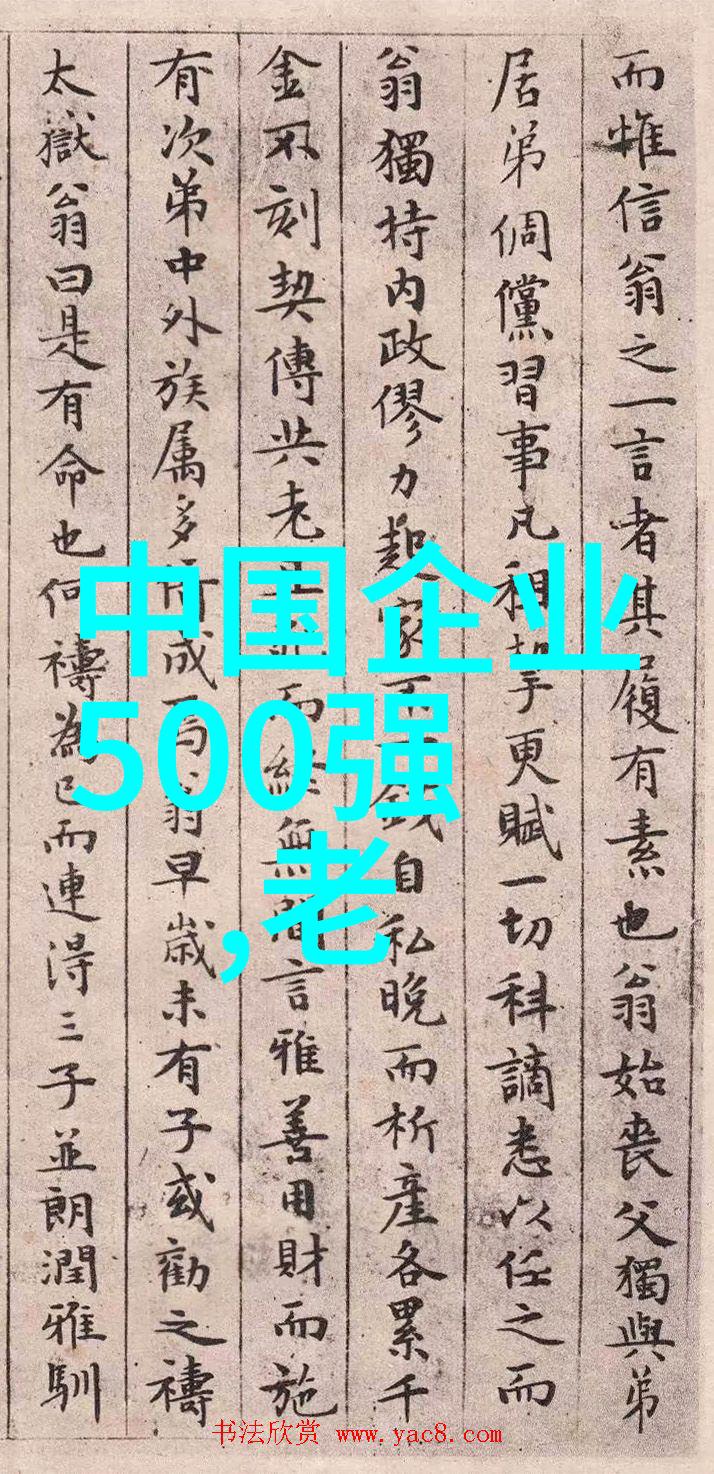 而惟信翁之一言者其履有素也翁始喪父獨與弟
居弟倜儻習事凡租更賦一切科謫悉以任之而
翁獨持内政僇力起家不錢自私晚而析產各累千
金不刻契傳共老而終無間言雅善用財而施
有次弟中外族属多所成焉翁早歲未有子或勸之禱
太嶽翁曰是有命也何禱為已而連得三子並朗潤雅馴
中国企业
500强
,老
书法欣赏 www.yac8.com